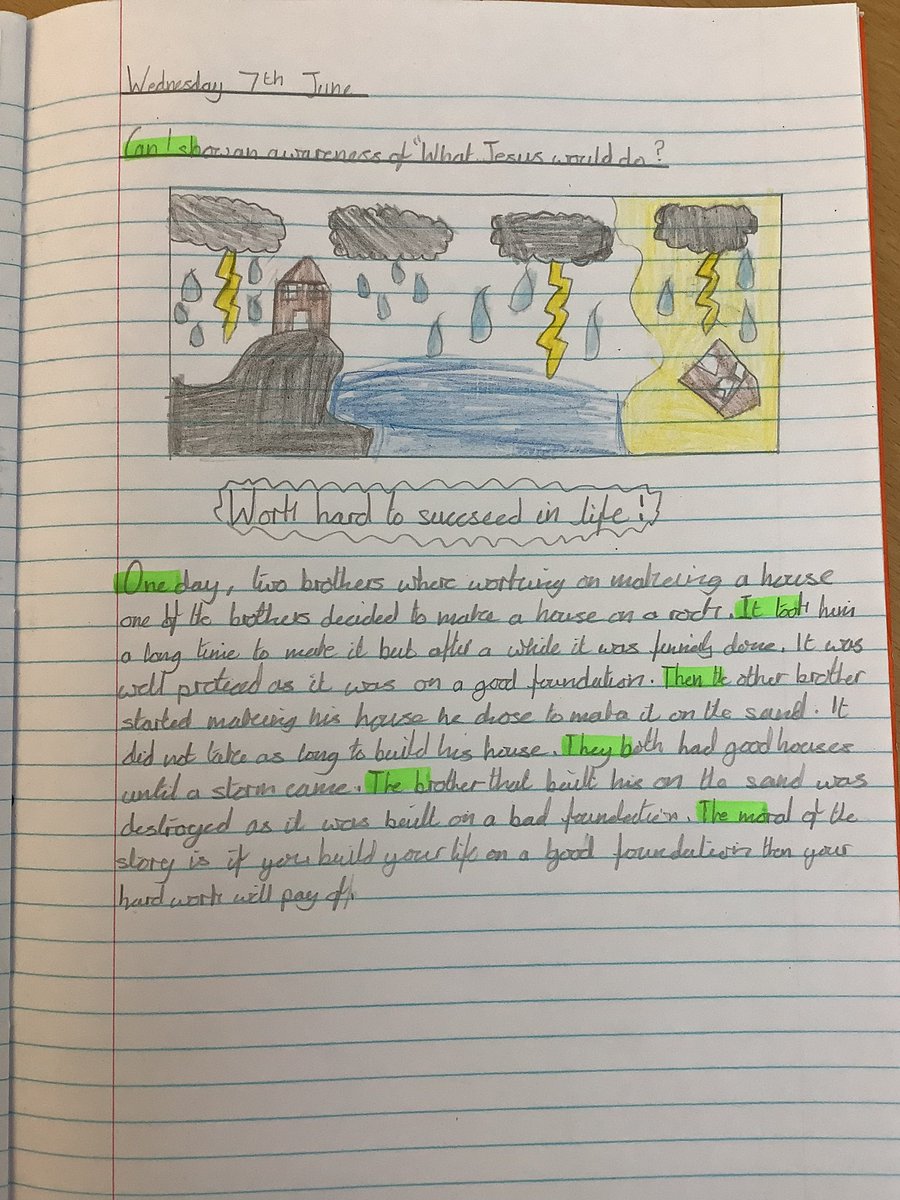 Wednesday 7th June
Can I show an awareness of "What Jesus would do?
Work hard to succseed in life!
One day, two brothers where working on makeing a house
one of the brothers decided to make a house on a rock. It took him
a long time to make it but after a while it was done. It was
well as it was on a good foundation. Then the other brother
started makeing his house he chose to make it on the sand. It
did not take as long to build his house. They both had good houses
until a storm came. The brother that built his on the sand was
destroyed as it was built on a bad foundation. The moral of the
story is if you build your life on a good foundation then your
hard work will pay of.